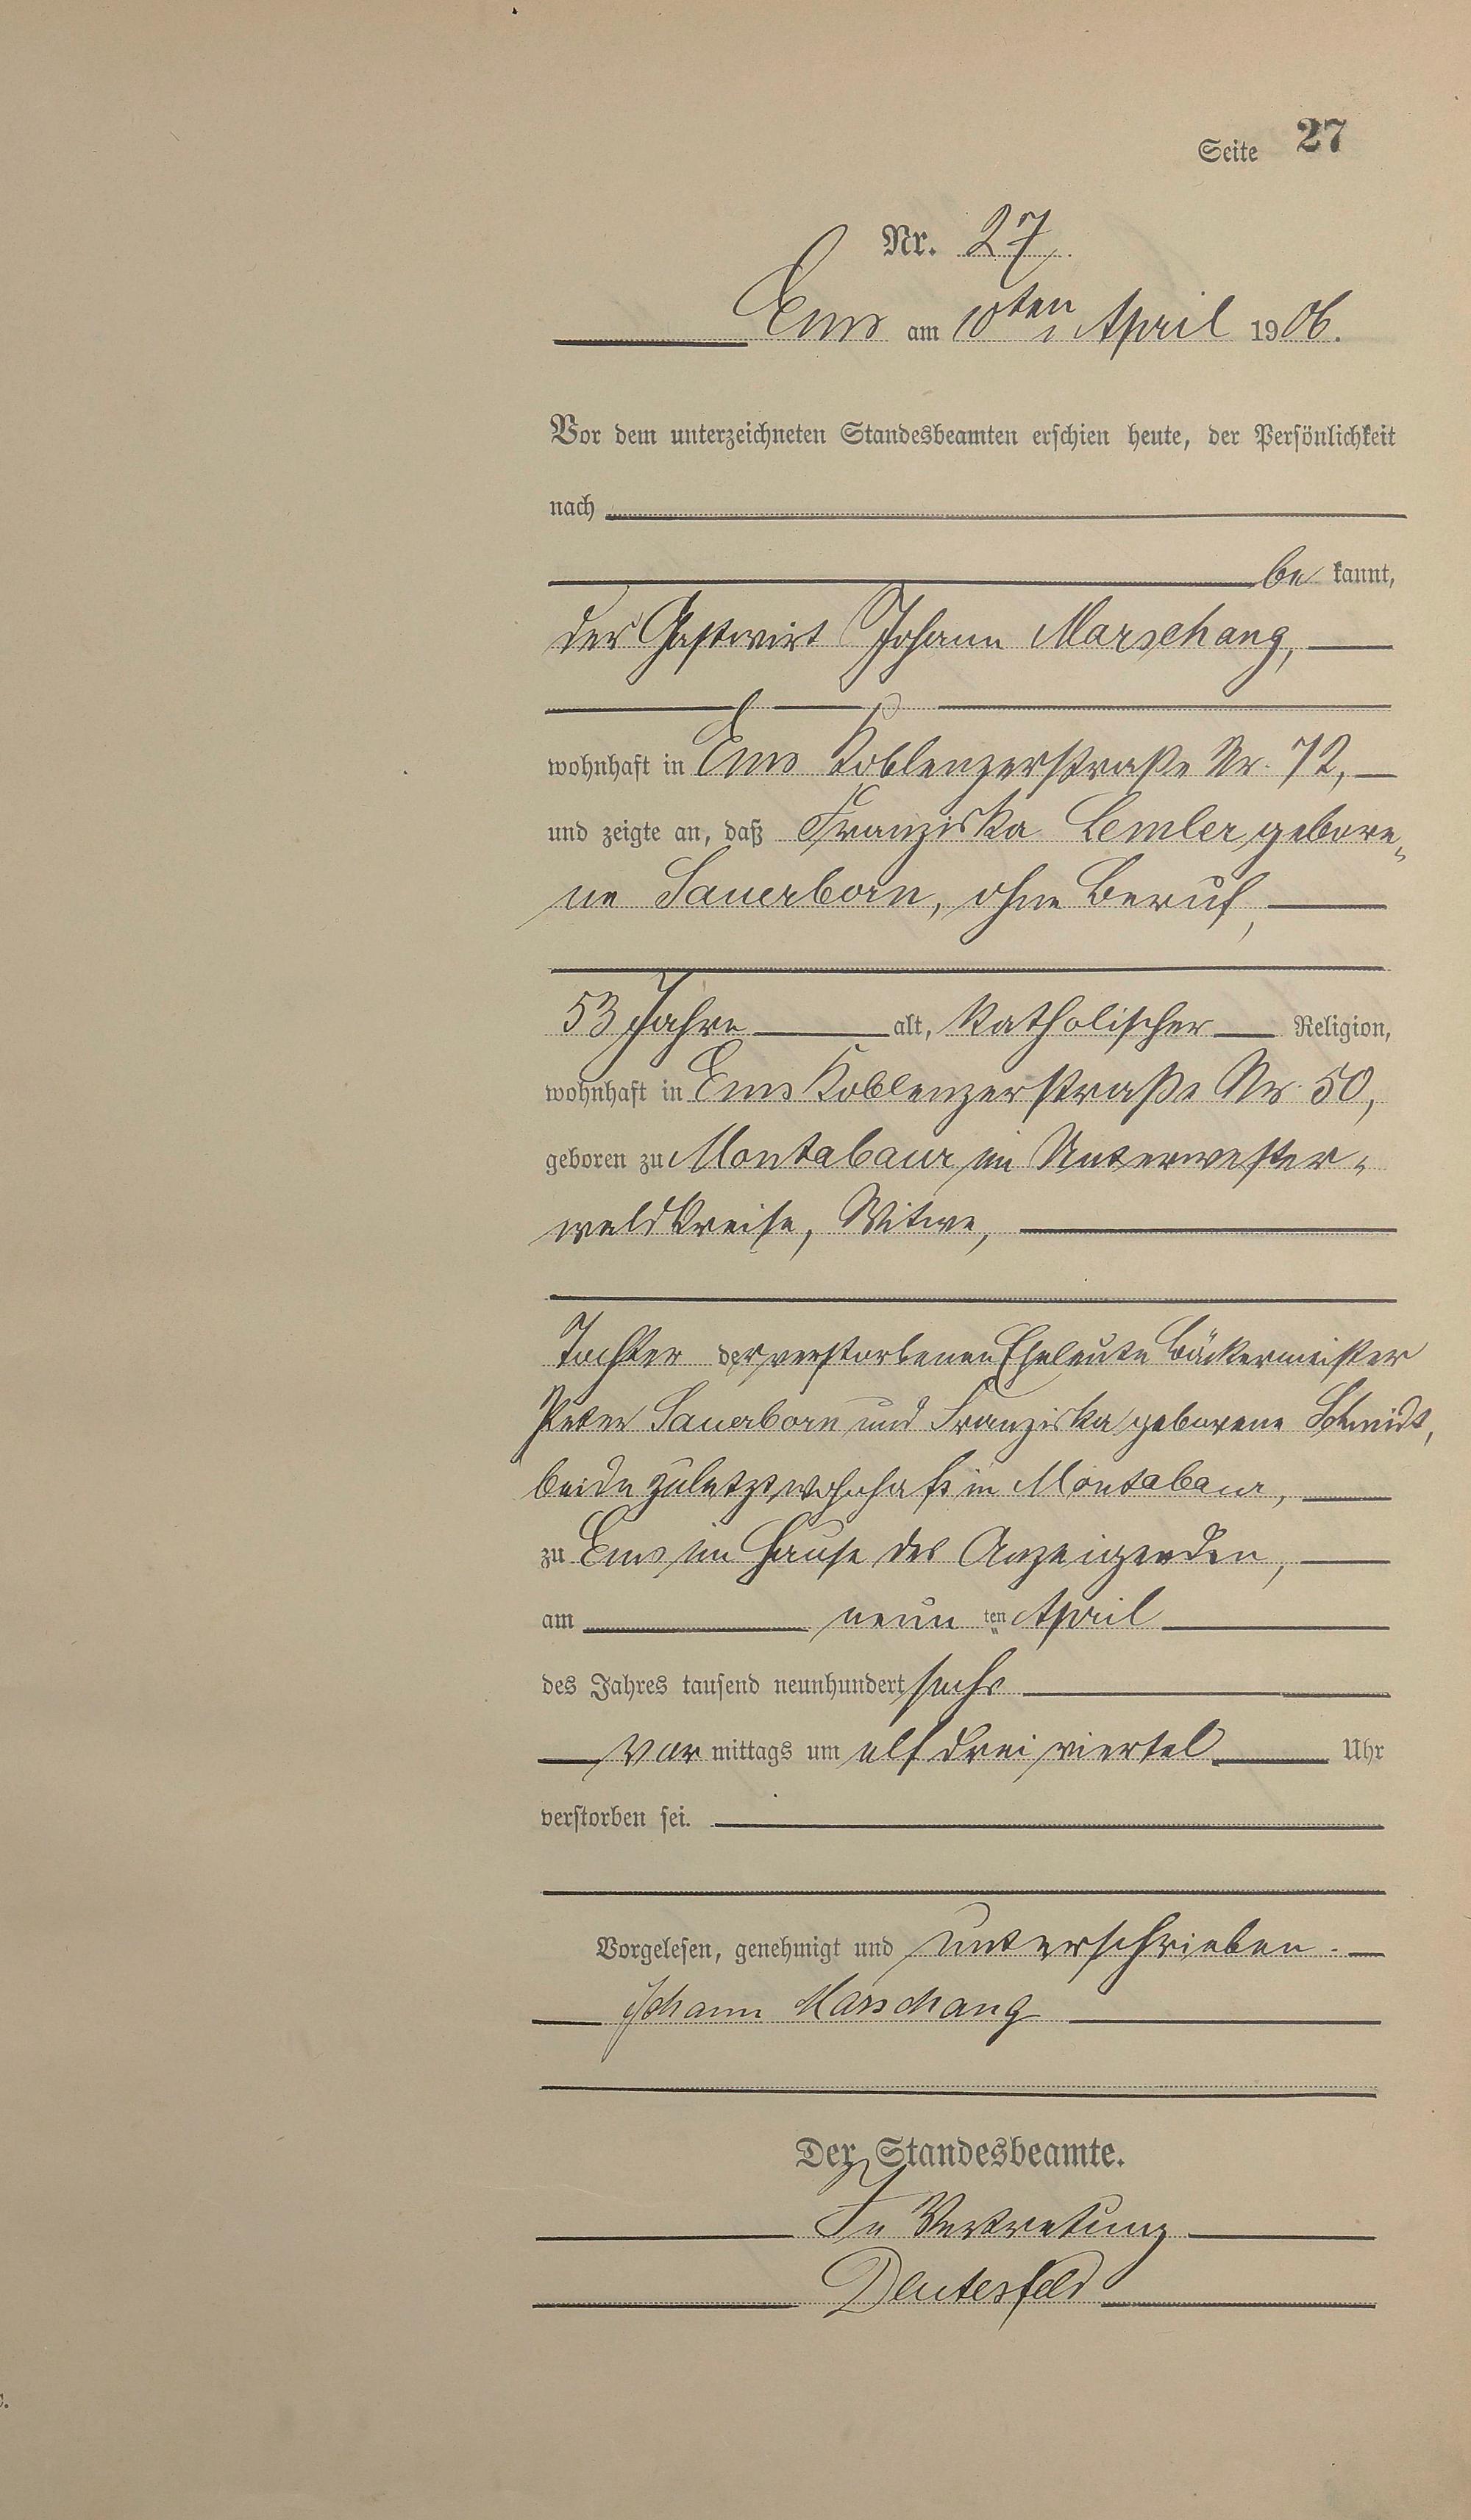 Seite 27
Nr. 27
Ems am 10ten April 1906.
Vor dem unterzeichneten Standesbeamten erschien heute, der Persönlichkeit
nach
be kannt,
der Gastwirt Johann Marschang,
wohnhaft in Ems Koblenzerstraße Nr. 72,
und zeigte an, daß Franziska Lemler gebore„
ne Sauerborn, ohne Beruf,
53 Jahre alt, katholischer Religion,
wohnhaft in Ems Koblenzerstraße Nr. 50,
geboren zu Montabaur im Unterwester„
waldkreise, Witwe,
Tochter der verstorbenen Eheleute Bäckermeister
Peter Sauerborn und Franziska geborene Schmidt,
beide zuletzt wohnhaft in Montabaur,
zu Ems im Hause des Anzeigenden,
am neun ten April
des Jahres tausend neunhundert sechs
Vor mittags um elf drei viertel Uhr
verstorben sei.
Vorgelesen, genehmigt und unterschrieben.
Johann Marschang
Der Standesbeamte.
In Vertretung